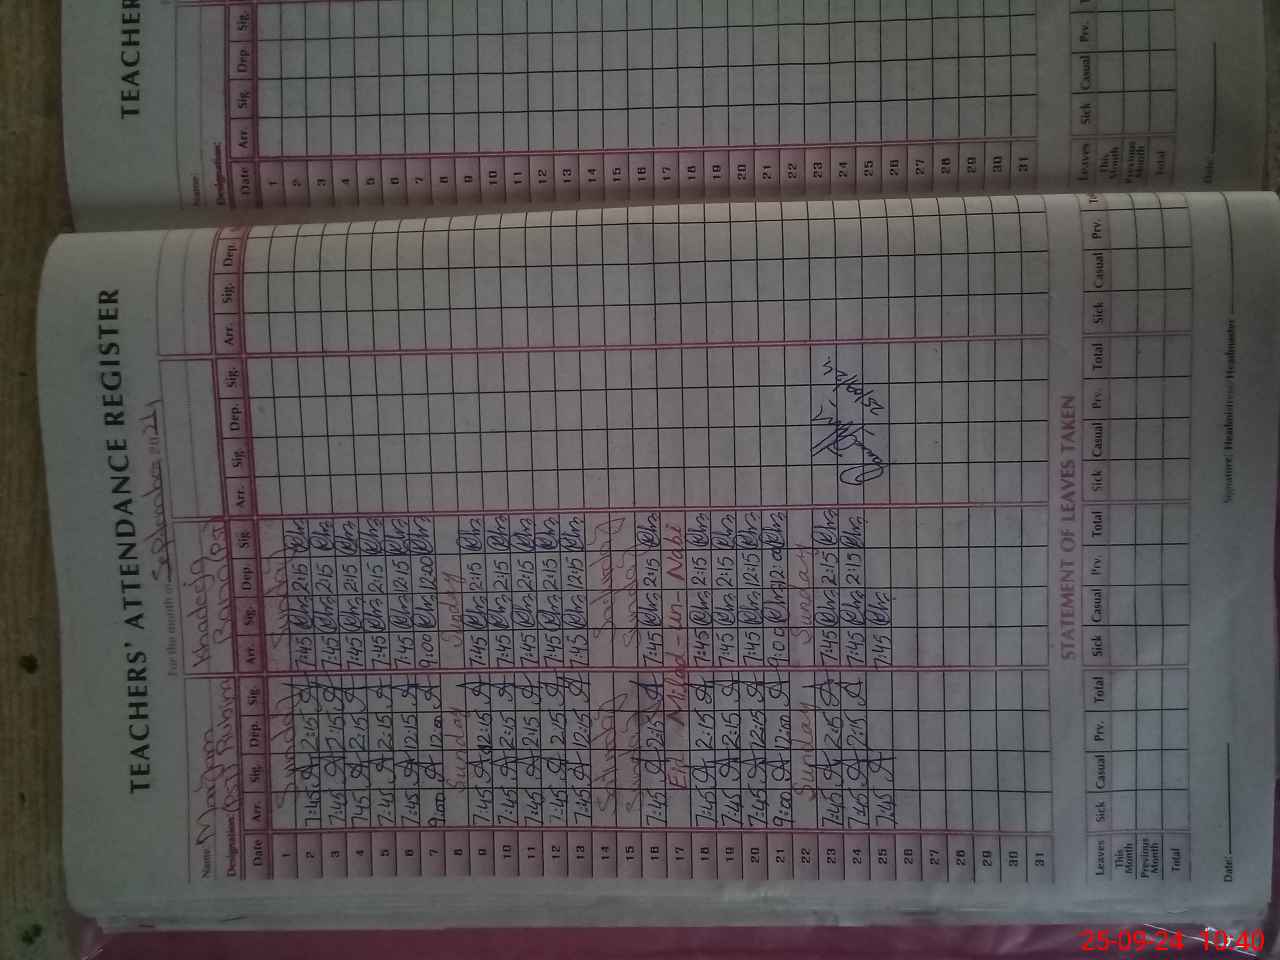 TEACHERS' ATTENDANCE REGISTER
For the month of September 2024
Name Maryam Khadeja
Designation (PST) Ruham Rano (PST)
Date Arr. Sig. Dep. Sig. Arr. Sig. Dep. Sig. Arr. Sig. Dep. Sig. Arr. Sig. Dep.
1 Sunday Sunday
2 7:45 2:15 7:45 2:15
3 7:45 2:15 7:45 2:15
4 7:45 2:15 7:45 2:15
5 7:45 2:15 7:45 2:15
6 7:45 12:15 7:45 12:15
7 9:00 12:00 9:00 12:00
8 Sunday Sunday
9 7:45 2:15 7:45 2:15
10 7:45 2:15 7:45 2:15
11 7:45 2:15 7:45 2:15
12 7:45 2:15 7:45 2:15
13 7:45 12:15 7:45 12:15
14
15 Sunday Sunday
16 7:45 2:15 7:45 2:15
17 Eid Millad-un-Nabi
18 7:45 2:15 7:45 2:15
19 7:45 2:15 7:45 2:15
20 7:45 12:15 7:45 12:15
21 9:00 12:00 9:00 12:00
22 Sunday Sunday
23 7:45 2:15 7:45 2:15
24 7:45 2:15 7:45 2:15
25 7:45 7:45
26
27
28
29
30
31
STATEMENT OF LEAVES TAKEN
Leaves Sick Casual Prv. Total Sick Casual Prv. Total Sick Casual Prv. Total Sick Casual Prv.
This Month
Previous Month
Total
Date: Signature: Headmistress/Headmaster
TEACHER
Name:
Designation:
Date Arr. Sig. Dep Sig.
1
2
3
4
5
6
7
8
9
10
11
12
13
14
15
16
17
18
19
20
21
22
23
24
25
26
27
28
29
30
31
Leaves Sick Casual Prv.
This Month
Previous Month
Total
Date:
25-09-24 10:40